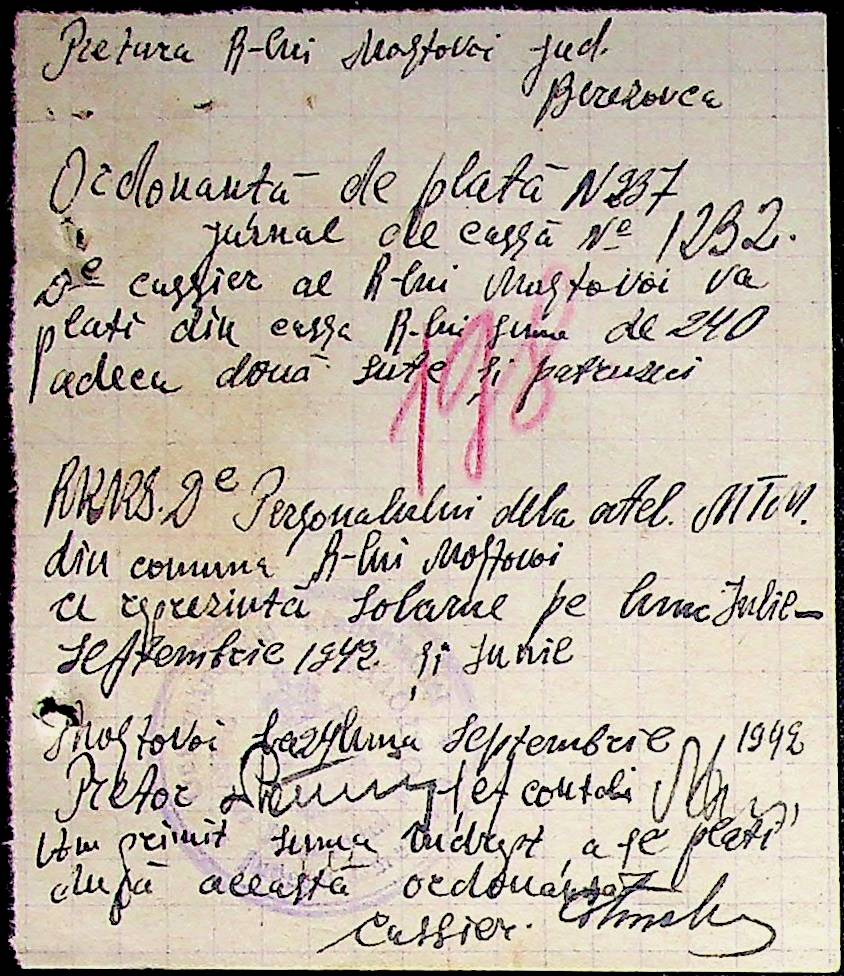 Pretura R-lui Mostovoi jud.
Berezovca
Ordonantă de plată N 237
jurnal de cassă Nº 1232.
De cassier al R-lui Mostovoi va
plati din cassa R-lui suma de 240
adeca două sute și patruzeci
198
RKKS. De Personalului dela atel.
din comuna R-lui Mostovoi
ce reprezintă solarne pe luna Iulie-
Septembrie 1942. și Iunie
Mostovoi la 24 luna Septembrie 1942
Pretor Șef contabi
Am primit suma indrept a se plati
după această ordonanță
Cassier.